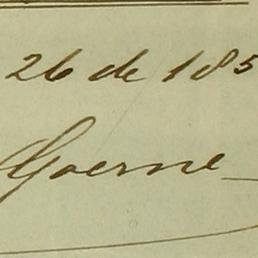 26 de 185
Goerne